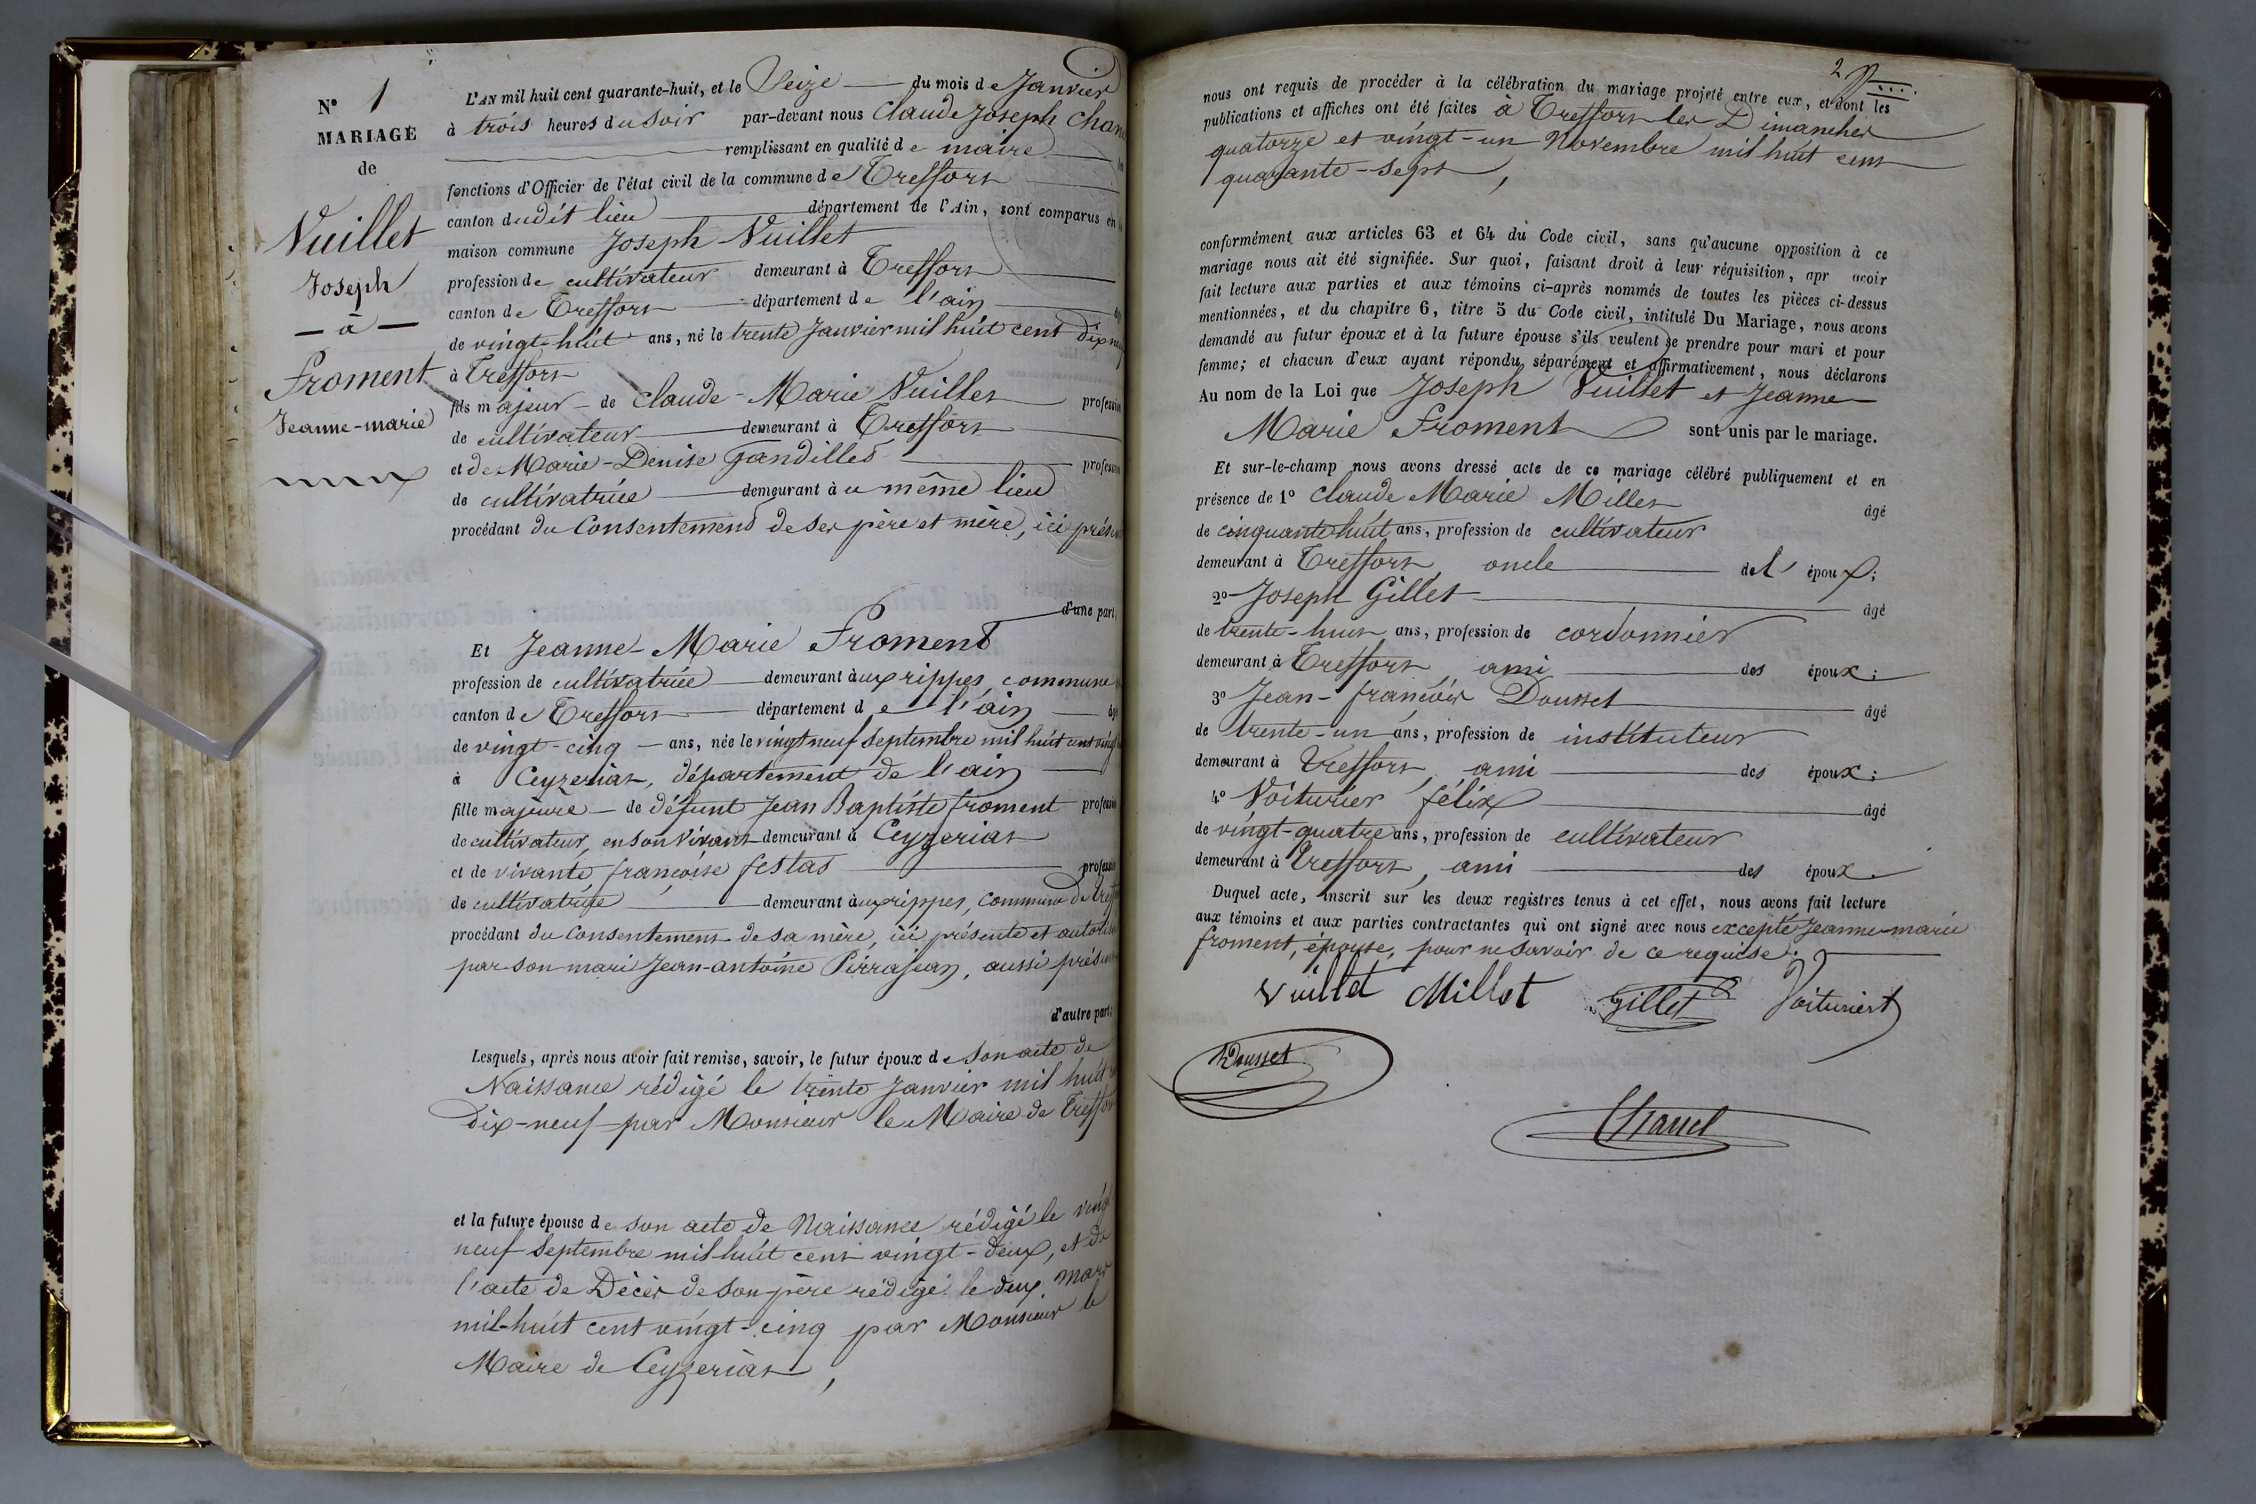 N° 1
MARIAGE
de
Vuillet
Joseph
— à —
Froment
Jeanne-marie
L'AN mil huit cent quarante-huit, et le Seize du mois de Janvier
à trois heures du soir par-devant nous Claude Joseph
remplissant en qualité de maire
fonctions d'Officier de l'état civil de la commune de Treffort
canton dudit lieu département de l'Ain, sont comparus en
maison commune Joseph Vuillet
profession de cultivateur demeurant à Treffort
canton de Treffort département de l'ain
de vingt-huit ans, né le trente Janvier mil huit cent dix
à Treffort
fils majeur de Claude-Marie Vuillet profession
de cultivateur demeurant à Treffort
et de Marie-Denise Gandillet profession
de cultivatrice demeurant à u même lieu
procédant du Consentement de ses père et mère, ici
d'une part,
Et Jeanne-Marie Froment
profession de cultivatrice demeurant à ux rippes, commune
canton de Treffort département de l'ain
de vingt-cinq ans, née le vingt neuf Septembre mil huit cent
à Ceyzeriat, département de l'ain
fille majeure de défunt Jean Baptiste froment profession
de cultivateur, en son vivant demeurant à Ceyzeriat
et de vivante françoise festas profession
de cultivatrice demeurant à ux rippes, commune de
procédant du Consentement de sa mère, ici présente et
par son mari Jean-antoine Pirrajean, aussi
d'autre part;
Lesquels, après nous avoir fait remise, savoir, le futur époux de son acte de
Naissance rédigé le trente Janvier mil huit
Dix-neuf par Monsieur le Maire de Treffort
et la future épouse de son acte de Naissance rédigé le vingt
neuf Septembre mil huit cent vingt-deux, et de
l'acte de Décès de son père rédigé le deux mars
mil-huit cent vingt-cinq par Monsieur le
Maire de Ceyzeriat,
2
nous ont requis de procéder à la célébration du mariage projeté entre eux, et dont les
publications et affiches ont été faites à Treffort les Dimanches
quatorze et vingt-un Novembre mil huit cent
quarante-sept,
conformément aux articles 63 et 64 du Code civil, sans qu'aucune opposition à ce
mariage nous ait été signifiée. Sur quoi, faisant droit à leur réquisition, apr avoir
fait lecture aux parties et aux témoins ci-après nommés de toutes les pièces ci-dessus
mentionnées, et du chapitre 6, titre 5 du Code civil, intitulé Du Mariage, nous avons
demandé au futur époux et à la future épouse s'ils veulent se prendre pour mari et pour
femme; et chacun d'eux ayant répondu séparément et affirmativement, nous déclarons
Au nom de la Loi que Joseph Vuillet et Jeanne
Marie Froment sont unis par le mariage.
Et sur-le-champ nous avons dressé acte de ce mariage célébré publiquement et en
présence de 1° Claude Marie Millet âgé
de cinquante huit ans, profession de cultivateur
demeurant à Treffort, oncle de l' époux;
2° Joseph Gillet âgé
de trente-huit ans, profession de cordonnier
demeurant à Treffort, ami des époux;
3° Jean-françois Dousset âgé
de trente-un ans, profession de instituteur
demeurant à Treffort, ami des époux;
4° Voiturier félix âgé
de vingt-quatre ans, profession de cultivateur
demeurant à Treffort, ami des époux.
Duquel acte, inscrit sur les deux registres tenus à cet effet, nous avons fait lecture
aux témoins et aux parties contractantes qui ont signé avec nous excepté Jeanne-marie
froment, épouse, pour ne savoir de ce requise.
Vuillet Millet Gillet Voiturier
Dousset
Chanel